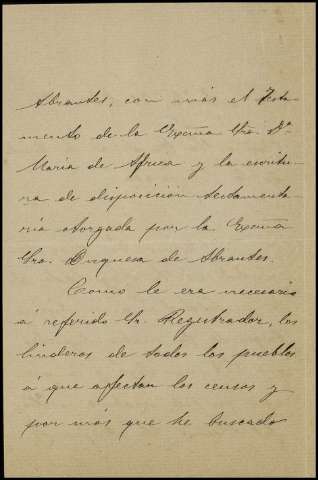 Abrantes, con más el Testa-
mento de la Excma Sra. Dª
María de Africa y la escritu-
ra de disposición testamenta-
ria otorgada por la Excma
Sra. Duquesa de Abrantes.
Como le era necesario
á referido Sr. Registrador, los
linderos de todos los pueblos
á que afectan los censos y
por más que he buscado